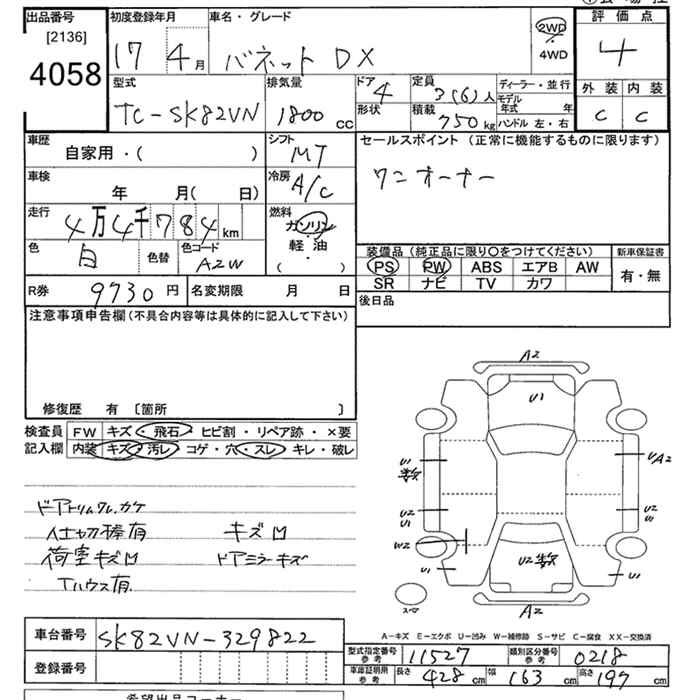 出品番号 初度登録年月 車名・グレード 評価点
[2136] 17 4月 バネット DX 2WD 4
4058 4WD
型式 排気量 ドア 4 定員 3(6)人 ディーラー・並行 外装 内装
TC-SK82VN 1800cc 形状 積載 750kg モデル年式 年 C C
ハンドル 左・右
車歴 シフト セールスポイント (正常に機能するものに限ります)
自家用・( ) MT
車検 冷房 ワンオーナー
年 月( 日) A/C
走行 燃料
4万4千784km ガソリン
色 白 色替 色コード A2W 軽油
( ・ )
装備品(純正品に限り○をつけてください) 新車保証書
PS PW ABS エアB AW 有・無
SR ナビ TV カワ
R券 9730円 名変期限 月 日 後日品
注意事項申告欄(不具合内容等は具体的に記入して下さい)
修復歴 有 〔箇所 〕
検査員 FW キズ・飛石・ヒビ割・リペア跡・×要
記入欄 内装 キズ・汚レ・コゲ・穴・スレ・キレ・破レ
A2
U1
U1 U A2
U2 U2
U1
W2
U2
U1 U1
スペア A2
仕切棒有 キズM
荷室キズM ドアミラーキズ
Tハウス有.
A-キズ E-エクボ U-凹み W-補修跡 S-サビ C-腐食 XX-交換済
車台番号 SK82VN-329822
型式指定番号 参考 11527 類別区分番号 参考 0218
登録番号
車庫証明用 参考 長さ 428cm 幅 163cm 高さ 197cm
希望出品コーナー